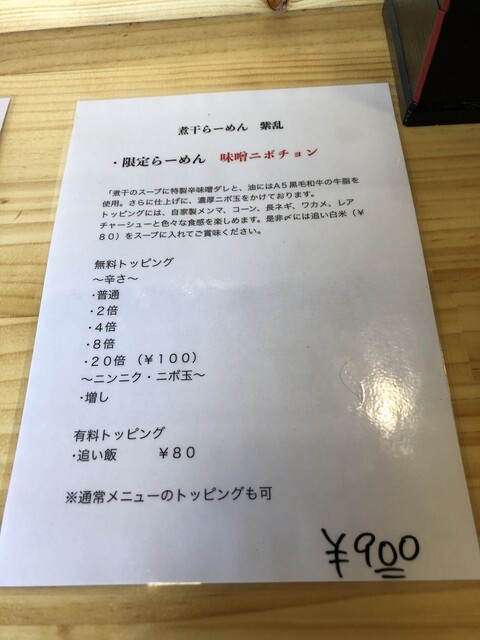 煮干らーめん 紫乱
・限定らーめん 味噌ニボチョン
「煮干のスープに特製辛味噌ダレと、油にはA5黒毛和牛の牛脂を
使用。さらに仕上げに、濃厚ニボ玉をかけております。
トッピングには、自家製メンマ、コーン、長ネギ、ワカメ、レア
チャーシューと色々な食感を楽しめます。是非〆には追い白米（￥
８０）をスープに入れてご賞味ください。
無料トッピング
～辛さ～
・普通
・２倍
・４倍
・８倍
・２０倍（￥１００）
～ニンニク・ニボ玉～
・増し
有料トッピング
・追い飯 ￥８０
※通常メニューのトッピングも可
￥900